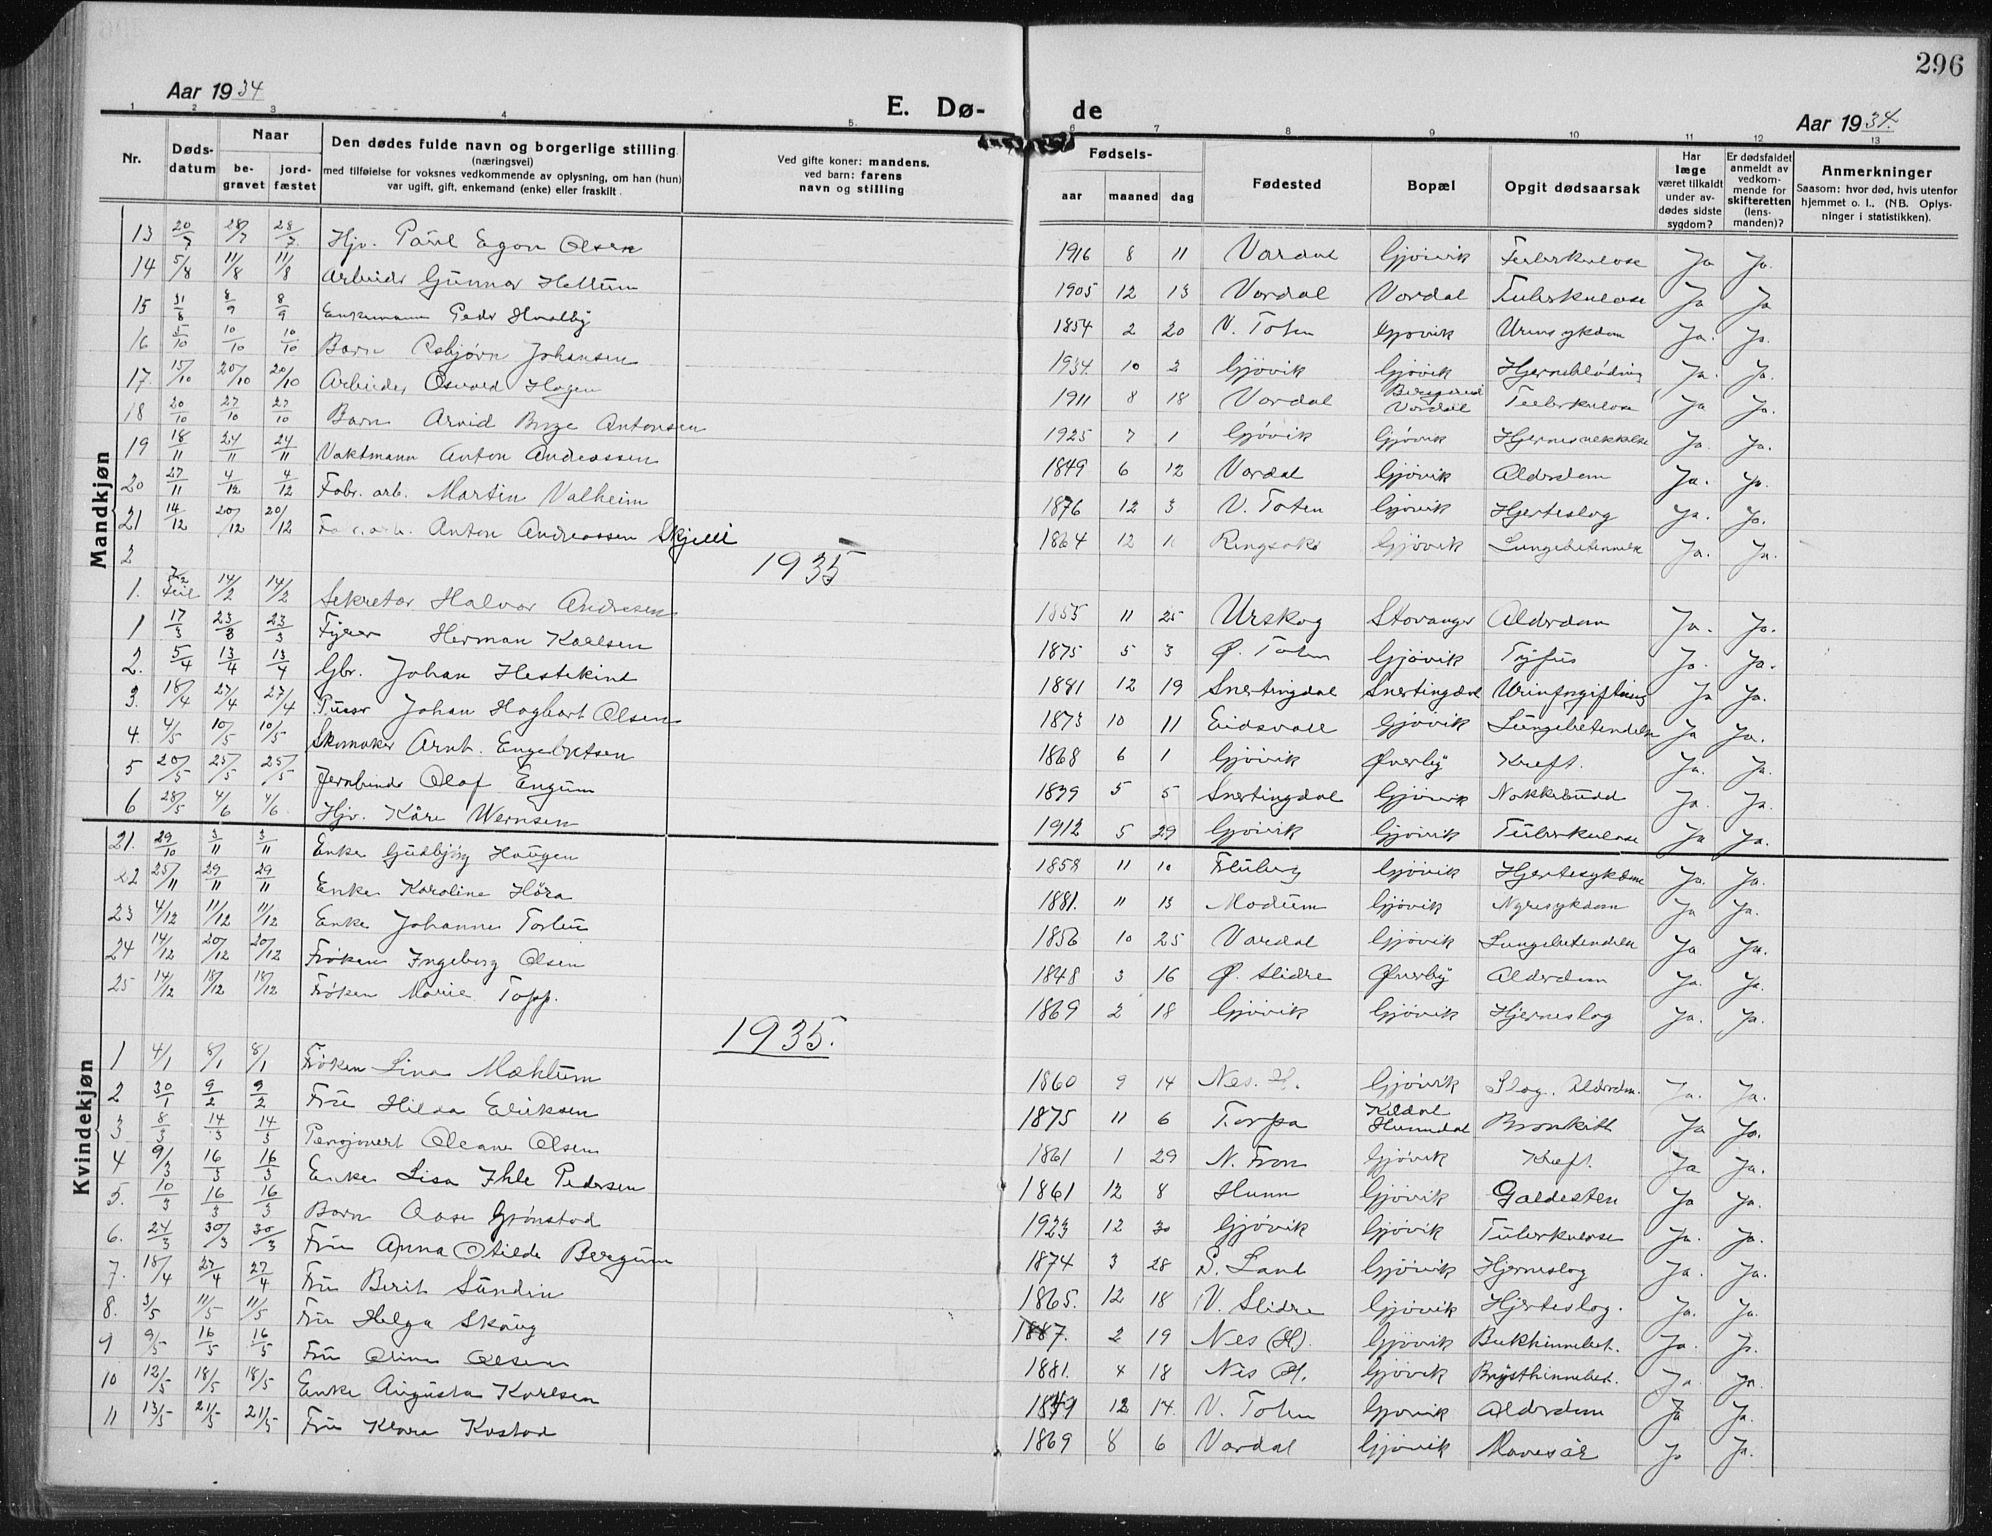 296
Aar 1934
E. Dø- de
Aar 1934.
1 2 3 4 5. 6 7 8 9 10 11 12 13
Nr.
Døds-datum
Naar
be-gravet
jord-fæstet
Den dødes fulde navn og borgerlige stilling
(næringsvei)
med tilføielse for voksnes vedkommende av oplysning, om han (hun)
var ugift, gift, enkemand (enke) eller fraskilt.
Ved gifte koner: mandens,
ved barn: farens
navn og stilling
Fødsels-
aar maaned dag
Fødested
Bopæl
Opgit dødsaarsak
Har læge været tilkaldt under av-dødes sidste sygdom?
Er dødsfaldet anmeldt av vedkom-mende for skifteretten (lens-manden)?
Anmerkninger
Saasom: hvor død, hvis utenfor
hjemmet o. l., (NB. Oplys-
ninger i statistikken).
Mandkjøn
13 20/7 28/7 28/7 Hjv. Paul Egon Olsen 1916 8 11 Vardal Gjøvik Tuberkulose Ja Ja.
14 5/8 11/8 11/8 Arbeider Gunnar Hellum 1905 12 13 Vardal Vardal Tuberkulose Ja Ja
15 31/8 8/9 8/9 Enkemann Peder Hvalby 1854 2 20 V. Toten Gjøvik Urinsykdom Ja. Ja.
16 5/10 10/10 10/10 Barn Asbjørn Johansen 1934 10 2 Gjövik Gjøvik Hjerneblødning Ja. Ja.
17. 15/10 20/10 20/10 Arbeider Osvald Hagen 1911 8 18 Vardal Vardal Tuberkulose Ja Ja.
18 20/10 27/10 27/10 Barn Arvid Antonsen 1925 7 1 Gjøvik Gjøvik Ja. Ja.
19 18/11 24/11 24/11 Vaktmann Anton Andreassen 1849 6 12 Vardal Gjøvik Alderdom Ja. Ja.
20 27/11 4/12 4/12 Fabr. arb. Martin Valheim 1876 12 3 V. Toten Gjøvik Hjerteslag Ja. Ja.
21 14/12 20/12 20/12 arb. Anton Andreassen Skjelli 1864 12 1 Ringsaker Gjøvik Lungebetennelse Ja. Ja.
2
1935
1. Feil 14/2 14/2 Sekretær Halvor Andresen 1855 11 25 Urskog Stavanger Alderdom Ja. Ja.
1 17/3 23/3 23/3 Herman Karlsen 1875 5 3 Ø. Toten Gjøvik Tyfus Ja. Ja.
2. 5/4 13/4 13/4 Gbr. Johan Hestekind 1881 12 19 Snertingdal Snertingdal Urinforgiftning Ja Ja.
3. 18/4 27/4 27/4 Pusser Johan Hagbart Olsen 1873 10 11 Eidsvoll Gjøvik Lungebetendelse Ja Ja.
4. 4/5 10/5 10/5 Skomaker Arnt. Engebretsen 1868 6 1 Gjøvik Øverby Kreft. Ja. Ja.
5 20/5 25/5 25/5 Jernbinder Olaf Engum 1839 5 5 Snertingdal Gjøvik Nakkebudd Ja. Ja.
6 28/5 4/6 4/6 Hjv. Kåre Wernsen 1912 5 29 Gjøvik Gjøvik Tuberkulose Ja Ja.
Kvindekjøn
21. 29/10 3/11 3/11 Enke Gudbjørg Haugen 1858 11 10 Fluberg Gjøvik Hjertesykdom Ja. Ja.
22 25/11 29/11 29/11 Enke Karoline Höra 1881. 11 13 Modum Gjøvik Nyresykdom Ja Ja.
23 4/12 11/12 11/12 Enke Johanne 1856 10 25 Vardal Gjøvik Lungebetendelse Ja Ja.
24 14/12 20/12 20/12 Frøken Ingeborg Olsen 1848 3 16 Ø. Slidre Øverby Alderdom Ja. Ja.
25 14/12 18/12 18/12 Frøken Marie Topp. 1869 2 18 Gjøvik Gjøvik Hjerneslag Ja. Ja.
1935.
1 4/1 8/1 8/1 Frøken Lina Mæhlum 1860 9 14 Nes. H. Gjøvik Slag. Alderdom. Ja. Ja.
2 30/1 9/2 9/2 Fru Hilda Eriksen 1875 11 6 Torpa Kildal Hunndal Bronkitt Ja Ja.
3 8/3 14/3 14/3 Pensjonert Oleane Olsen 1861 1 29 N. Fron Gjøvik Kreft. Ja Ja.
4 9/3 16/3 16/3 Enke Lisa Ihle Pedersen 1861 12 8 Hunn Gjøvik Galdesten Ja Ja.
5. 10/3 16/3 16/3 Barn Aase Grønstad 1923 12 30 Gjøvik Gjøvik Tuberkulose Ja. Ja.
6. 24/3 30/3 30/3 Fru Anna Otilde Bergum 1874 3 28 S. Land Gjøvik Hjerneslag Ja. Ja.
7. 18/4 27/4 27/4 Fru Berit Sundin 1865. 12 18 V. Slidre Gjøvik Hjerteslag. Ja. Ja.
8. 3/5 11/5 11/5 Fru Helga Skaug 1887. 2 19 Nes (H). Gjøvik Bukhinnebet. Ja. Ja.
9 9/5 16/5 16/5 Fru Oline Olsen 1881. 4 18 Nes H. Gjøvik Brysthinnebet. Ja. Ja.
10 12/5 18/5 18/5 Enke Augusta Karlsen 12 14. V. Toten Gjøvik Alderdom Ja Ja.
11 13/5 21/5 21/5 Fru Klara Kvstad 1869 8 6 Vardal Gjøvik Mavesår Ja Ja.